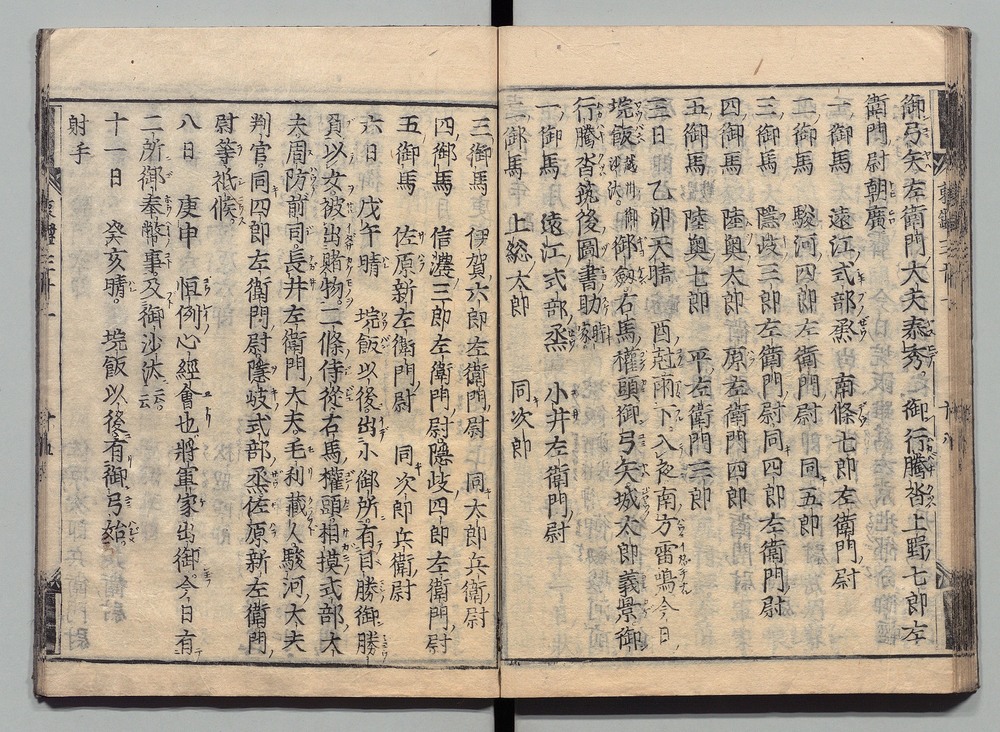 御弓矢左衛門大夫泰秀 御行騰沓上野七郎左
衛門尉朝廣
一御馬 遠江式部丞 南條七郎左衛門尉
二御馬 駿河四郎左衛門尉 同五郎
三御馬 隠岐三郎左衛門尉同四郎左衛門尉
四御馬 陸奥太郎 原左衛門四郎
五御馬 陸奥七郎 平左衛門三郎
三日 乙卯天晴 酉尅雨下入夜南方雷鳴今日
垸飯 御沙汰 御釼右馬權頭御弓矢城太郎義景御
行騰沓筑後圖書助時家
一御馬 遠江式部丞 小井左衛門尉
二御馬 上総太郎 同次郎
三御馬 伊賀六郎左衛門尉 同太郎兵衛尉
四御馬 信濃三郎左衛門尉隠岐四郎左衛門尉
五御馬 佐原新左衛門尉 同次郎兵衛尉
六日 戊午晴 垸飯以後出小御所有目勝御勝
負以女被出賭物二條侍從右馬權頭相摸式部大
夫周防前司長井左衛門大夫毛利藏人駿河大夫
判官同四郎左衛門尉隠岐式部丞佐原新左衛門
尉等祗候
八日 庚申 恒例心經會也將軍家出御今日有
二所御奉幣事及御沙汰云云
十一日 癸亥晴 垸飯以後有御弓始
射手